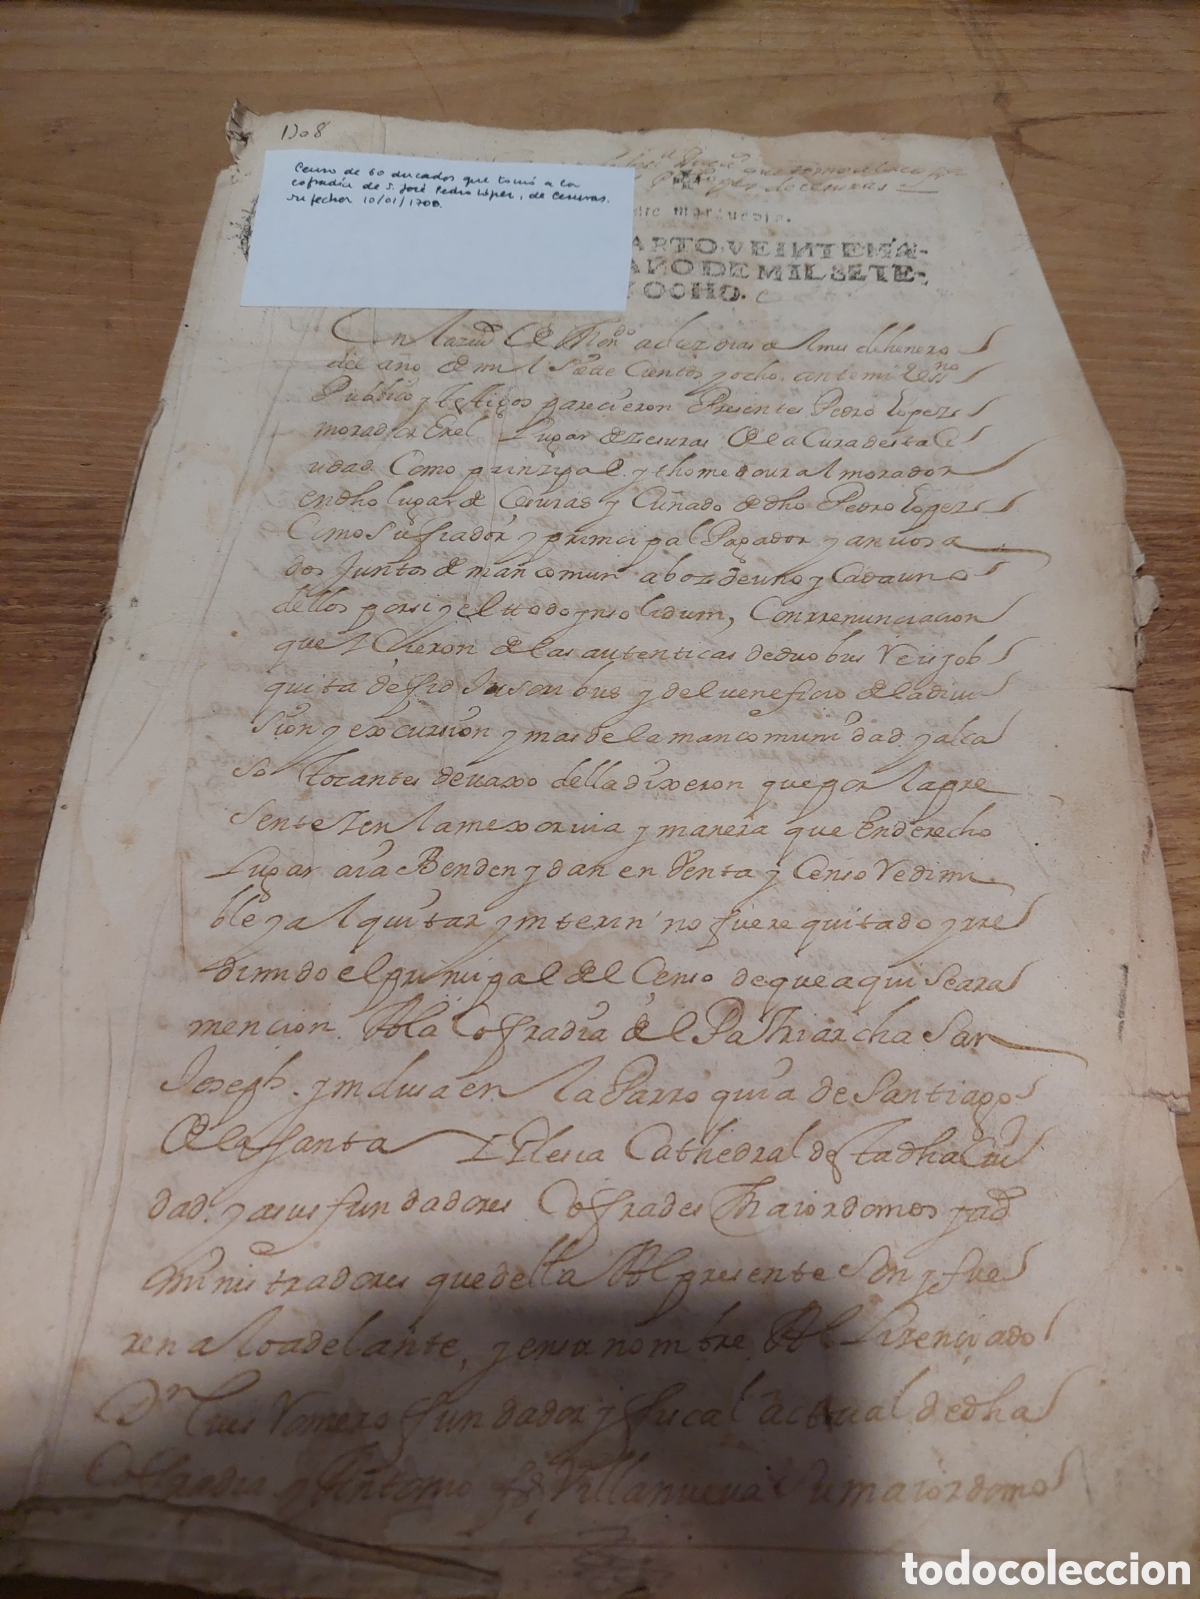 1708
Censo de 60 ducados que tomó a la
cofradía de S. José Pedro López, de Cesuras.
Su fecha 10/01/1708.
que tomo
de cesuras
ARTO, VEINTE MA-
AÑO DE MIL SETE-
Y OCHO.
En la ciud de Mondo a diez dias del mes de henero
del año de mil setecientos y ocho. ante mi essno
Publico y testigos parecieron Presentes Pedro Lopez
morador en el Lugar de zesuras de la Cura desta Ci
udad Como prinzipal y thome doural morador
en dho lugar de Cesuras y Cuñado de dho Pedro Lopez
Como su fiador y principal Pagador y anvos a
dos Juntos de mancomun a boz de uno y Cada uno
dellos por si y el ttodo ynsolidum, Conrrenunciacion
que hicieron de las autenticas de duobus Reis
quita de fide Jusoribus y del veneficio de la diui
sion y excursion y mas de la mancomunidad y al ca
so tocantes devaxo della dixeron que por la pre
sente y en la mexor via y manera que en derecho
Lugar aia Benden y dan en Venta y Censo Redimi
ble y al quitar ynterin no fuere quitado y rre
dimido el prinzipal del Censo de que aqui se ara
mencion. A la Cofradia del Patriarcha San
Joseph. ynclusa en la Parroquia de Santiago
de la santa Iglesia Cathedral desta dha Ciu
dad. y a sus fundadores Cofrades Maiordomos y ad
ministradores que della Al presente son y fue
ren a lo adelante, y en su nombre Al Lizenciado
Dn Luis Romero fundador y fiscal actual de dha
Cofradia y Antonio Villanueva su maiordomo
todocoleccion